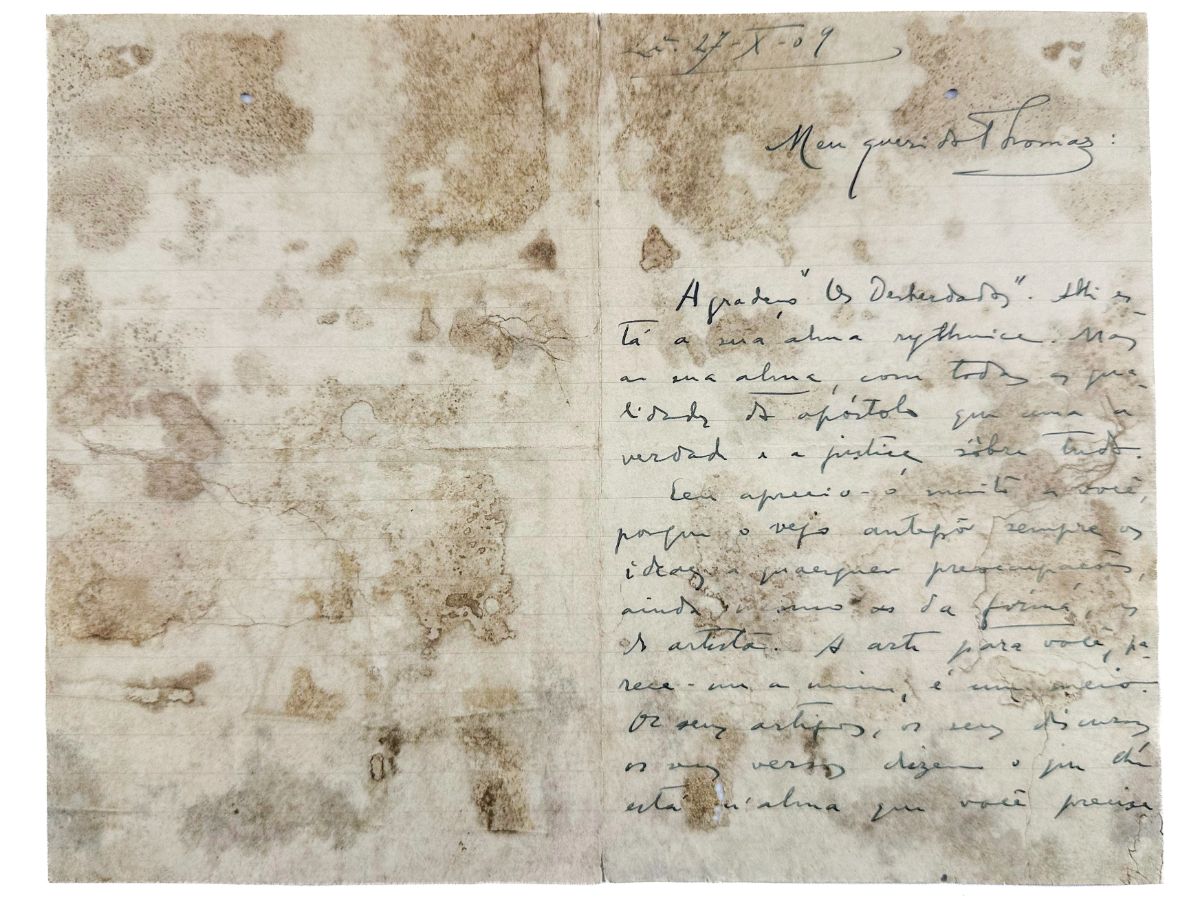 27-X-09
Meu querido Thomaz:
Agradeço "Os Desherdados". Alli es
tá a sua alma rythmica. Mas
a sua alma, com todas as qua-
lidades de apóstolo que ama a
verdade e a justiça sôbre tudo.
Eeu aprecio-o muito a você,
porque o vejo antepôr sempre os
ideaes a quaesquer preocupações,
ainda mesmo as da forma, as
do artista. A arte para você, pa-
rece-me a mim, é um meio.
Os seus artigos, os seus discursos
os seus versos dizem o que
está n'alma que você precisa